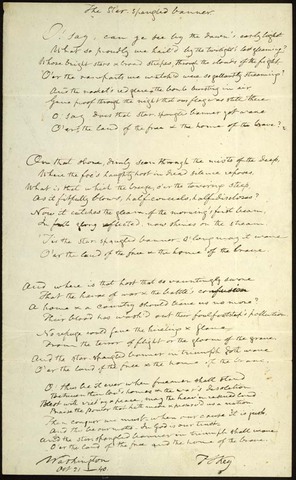 The Star-spangled banner.
O! say, can ye see by the dawn's early light
What so proudly we hail'd by the twilight's last gleaming?
Whose bright stars & broad stripes, through the clouds of the fight,
O'er the ramparts we watched were so gallantly streaming?
And the rocket's red glare, the bomb bursting in air
Gave proof through the night that our flag was still there
O! say, does that star-spangled banner yet wave
O'er the land of the free & the home of the brave?
On that shore, dimly seen through the mists of the deep,
Where the foe's haughty host in dread silence reposes
What is that which the breeze, o'er the towering steep,
As it fitfully blows, half conceals, half discloses?
Now it catches the gleam of the morning's first beam,
In full glory reflected now shines on the stream
'Tis the star-spangled banner. O! long may it wave
O'er the land of the free & the home of the brave.
And where is that host that so vauntingly swore
That the havoc of war & the battle's confusion
A home & a Country should leave us no more?
Their blood has wash'd out their foul footsteps' pollution
No refuge could save the hireling & slave
From the terror of flight or the gloom of the grave
And the star-spangled banner in triumph doth wave
O'er the land of the free & the home of the brave.
O! thus be it ever when freemen shall stand
Between their lov'd homes & the war's desolation
Blest with vict'ry & peace, may the heav'n rescued land
Praise the power that hath made & preserved us a nation
Then conquer we must, when our cause it is just
And this be our motto. In God is our trust
And the star-spangled banner in triumph shall wave
O'er the land of the free and the home of the brave.
Washington
Oct 21 - 40
F S Key